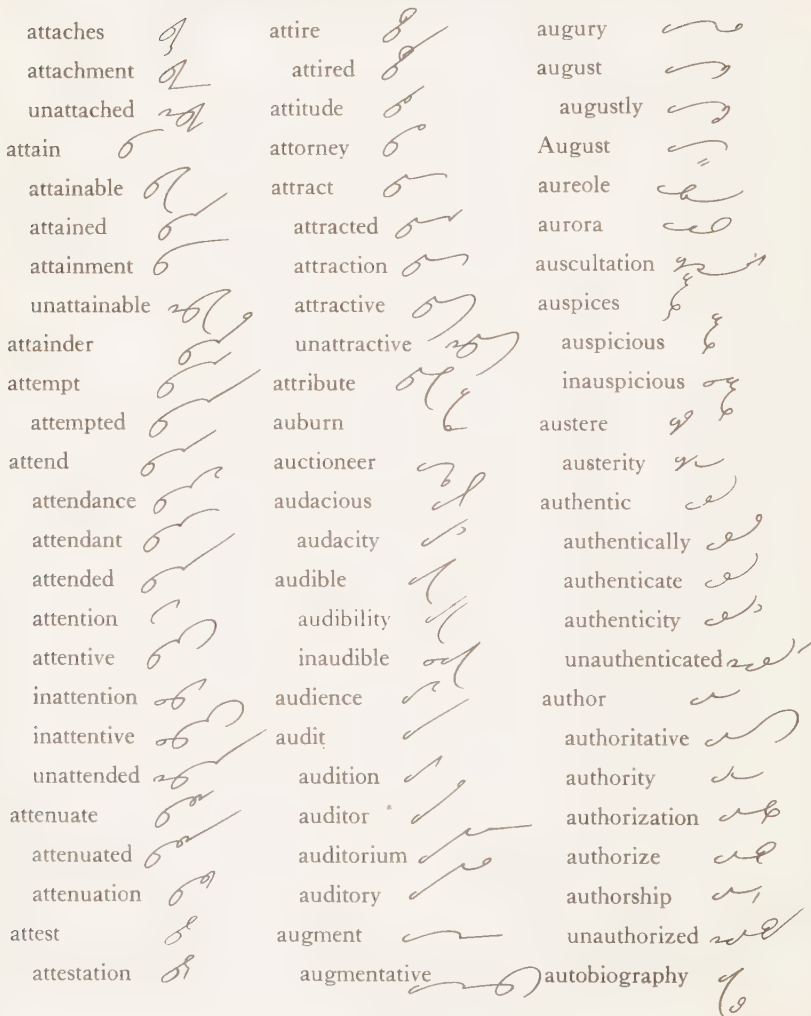 attaches
attachment
unattached
attain
attainable
attained
attainment
unattainable
attainder
attempt
attempted
attend
attendance
attendant
attended
attention
attentive
inattention
inattentive
unattended
attenuate
attenuated
attenuation
attest
attestation
attire
attired
attitude
attorney
attract
attracted
attraction
attractive
unattractive
attribute
auburn
auctioneer
audacious
audacity
audible
audibility
inaudible
audience
audit
audition
auditor
auditorium
auditory
augment
augmentative
augury
august
augustly
August
aureole
aurora
auscultation
auspices
auspicious
inauspicious
austere
austerity
authentic
authentically
authenticate
authenticity
unauthenticated
author
authoritative
authority
authorization
authorize
authorship
unauthorized
autobiography